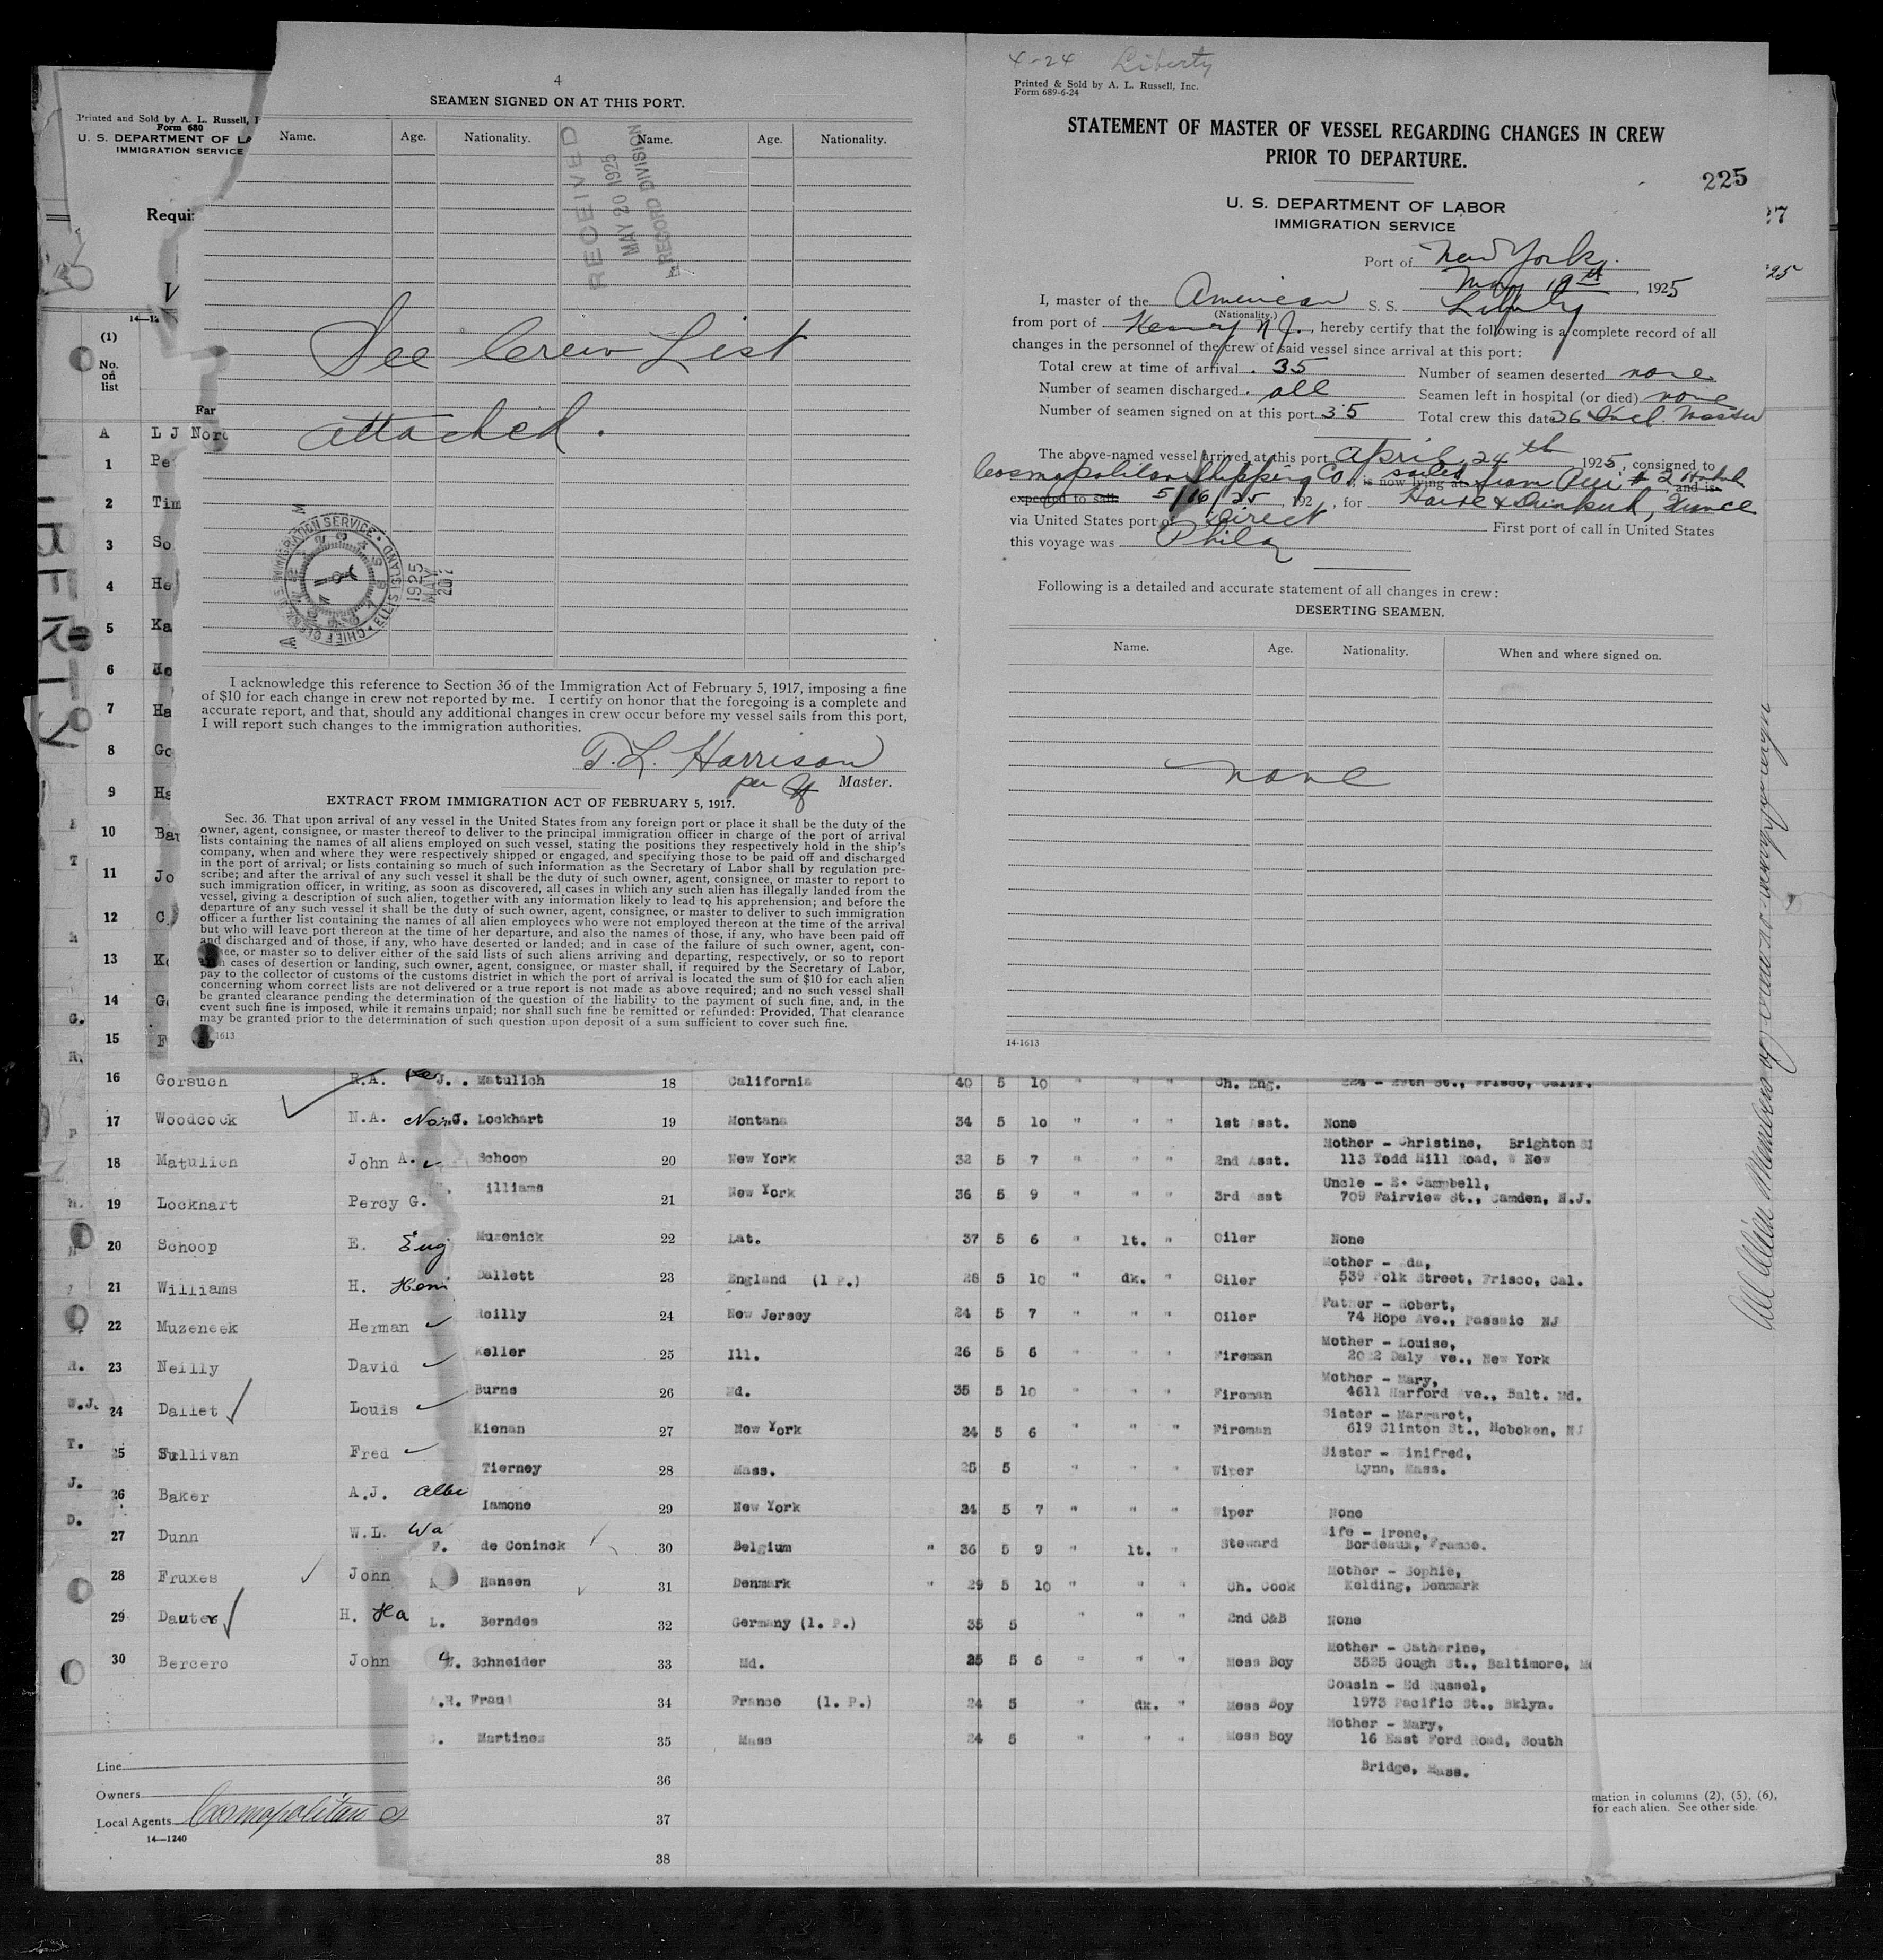 4
SEAMEN SIGNED ON AT THIS PORT.
Name. Age. Nationality. Name. Age. Nationality.
RECEIVED
MAY 20 1925
RECORD DIVISION
See Crew List
attached.
CHIEF CLERK'S IMMIGRATION SERVICE • ELLIS ISLAND
1925
MAY
20
I acknowledge this reference to Section 36 of the Immigration Act of February 5, 1917, imposing a fine
of $10 for each change in crew not reported by me. I certify on honor that the foregoing is a complete and
accurate report, and that, should any additional changes in crew occur before my vessel sails from this port,
I will report such changes to the immigration authorities.
T. L. Harrison
per
Master.
EXTRACT FROM IMMIGRATION ACT OF FEBRUARY 5, 1917.
Sec. 36. That upon arrival of any vessel in the United States from any foreign port or place it shall be the duty of the
owner, agent, consignee, or master thereof to deliver to the principal immigration officer in charge of the port of arrival
lists containing the names of all aliens employed on such vessel, stating the positions they respectively hold in the ship's
company, when and where they were respectively shipped or engaged, and specifying those to be paid off and discharged
in the port of arrival; or lists containing so much of such information as the Secretary of Labor shall by regulation pre-
scribe; and after the arrival of any such vessel it shall be the duty of such owner, agent, consignee, or master to report to
such immigration officer, in writing, as soon as discovered, all cases in which any such alien has illegally landed from the
vessel, giving a description of such alien, together with any information likely to lead to his apprehension; and before the
departure of any such vessel it shall be the duty of such owner, agent, consignee, or master to deliver to such immigration
officer a further list containing the names of all alien employees who were not employed thereon at the time of the arrival
but who will leave port thereon at the time of her departure, and also the names of those, if any, who have been paid off
and discharged and of those, if any, who have deserted or landed; and in case of the failure of such owner, agent, con-
nee, or master so to deliver either of the said lists of such aliens arriving and departing, respectively, or so to report
cases of desertion or landing, such owner, agent, consignee, or master shall, if required by the Secretary of Labor,
pay to the collector of customs of the customs district in which the port of arrival is located the sum of $10 for each alien
concerning whom correct lists are not delivered or a true report is not made as above required; and no such vessel shall
be granted clearance pending the determination of the question of the liability to the payment of such fine, and, in the
event such fine is imposed, while it remains unpaid; nor shall such fine be remitted or refunded: Provided, That clearance
may be granted prior to the determination of such question upon deposit of a sum sufficient to cover such fine.
1613
4-24 Liberty
Printed & Sold by A. L. Russell, Inc.
Form 689-6-24
STATEMENT OF MASTER OF VESSEL REGARDING CHANGES IN CREW
PRIOR TO DEPARTURE.
225
U. S. DEPARTMENT OF LABOR
IMMIGRATION SERVICE
Port of New York.
May 19th, 1925
I, master of the American S. S. Liberty
(Nationality.)
from port of Kearny N J., hereby certify that the following is a complete record of all
changes in the personnel of the crew of said vessel since arrival at this port:
Total crew at time of arrival . 35 Number of seamen deserted none
Number of seamen discharged . all Seamen left in hospital (or died) none
Number of seamen signed on at this port 35 Total crew this date 36 Incl. Master
The above-named vessel arrived at this port April 24th 1925, consigned to
Cosmopolitan Shipping Co., is now lying at sailed from Pier # 2 , and is
expected to sail 5/16/25, 192 , for Havre & Dunkirk, France
via United States port of direct First port of call in United States
this voyage was Phila
Following is a detailed and accurate statement of all changes in crew:
DESERTING SEAMEN.
Name. Age. Nationality. When and where signed on.
none
14-1613
Printed and Sold by A. L. Russell,
Form 680
U. S. DEPARTMENT OF LA
IMMIGRATION SERVICE
Requi
V
14—12
(1)
No.
on
list
Far
A L J Nord
1 Pe
2 Tim
3 So
4 He
5 Ka
6
7 Ha
8 Go
9 Ha
10 Bar
11 Jo
12 C.
13 Ko
14 G
15 F
LIBERTY
27
25
All Alien Members of
16 Gorsuch R.A.
17 Woodcock N.A. Nor
18 Matulich John A.
19 Lockhart Percy G.
20 Schoop E. Eug
21 Williams H. Hen
22 Muzeneek Herman
23 Neilly David
24 Dallet Louis
25 Sullivan Fred
26 Baker A.J. Albe
27 Dunn W.L. Wa
28 Fruxes John
29 Dauter H. Ha
30 Bercero John
J.A. Matulich 18 California 40 5 10 " " " Ch. Eng. 224 - 29th St., Frisco, Calif.
G. Lockhart 19 Montana 34 5 10 " " " 1st Asst. None
Schoop 20 New York 32 5 7 " " " 2nd Asst. Mother - Christine, Brighton
113 Todd Hill Road, W New
Williams 21 New York 36 5 9 " " " 3rd Asst Uncle - E. Campbell,
709 Fairview St., Camden, N.J.
Muzenick 22 Lat. 37 5 6 " lt. " Oiler None
Dallett 23 England (1 P.) 28 5 10 " dk. " Oiler Mother - Ada,
539 Polk Street, Frisco, Cal.
Reilly 24 New Jersey 24 5 7 " " " Oiler Father - Robert,
74 Hope Ave., Passaic NJ
Keller 25 Ill. 26 5 6 " " " Fireman Mother - Louise,
2022 Daly Ave., New York
Burns 26 Md. 35 5 10 " " " Fireman Mother - Mary,
4611 Harford Ave., Balt. Md.
Kienan 27 New York 24 5 6 " " " Fireman Sister - Margaret,
619 Clinton St., Hoboken, NJ
Tierney 28 Mass. 25 5 " " " Wiper Sister - Winifred,
Lynn, Mass.
Iamone 29 New York 24 5 7 " " " Wiper None
F. de Coninck 30 Belgium " 36 5 9 " lt. " Steward Wife - Irene,
Bordeaux, France.
Hansen 31 Denmark " 29 5 10 " " " Ch. Cook Mother - Sophie,
Kolding, Denmark
L. Berndes 32 Germany (1. P.) 35 5 " " " 2nd C&B None
W. Schneider 33 Md. 25 5 6 " " " Mess Boy Mother - Catherine,
3525 Gough St., Baltimore, Md
A.R. Fraui 34 France (1. P.) 24 5 " dk. " Mess Boy Cousin - Ed Russel,
1973 Pacific St., Bklyn.
C. Martines 35 Mass 24 5 " " " Mess Boy Mother - Mary,
16 East Ford Road, South
Bridge, Mass.
36
37
38
Line
Owners
Local Agents Cosmopolitan S
14—1240
mation in columns (2), (5), (6),
for each alien. See other side.